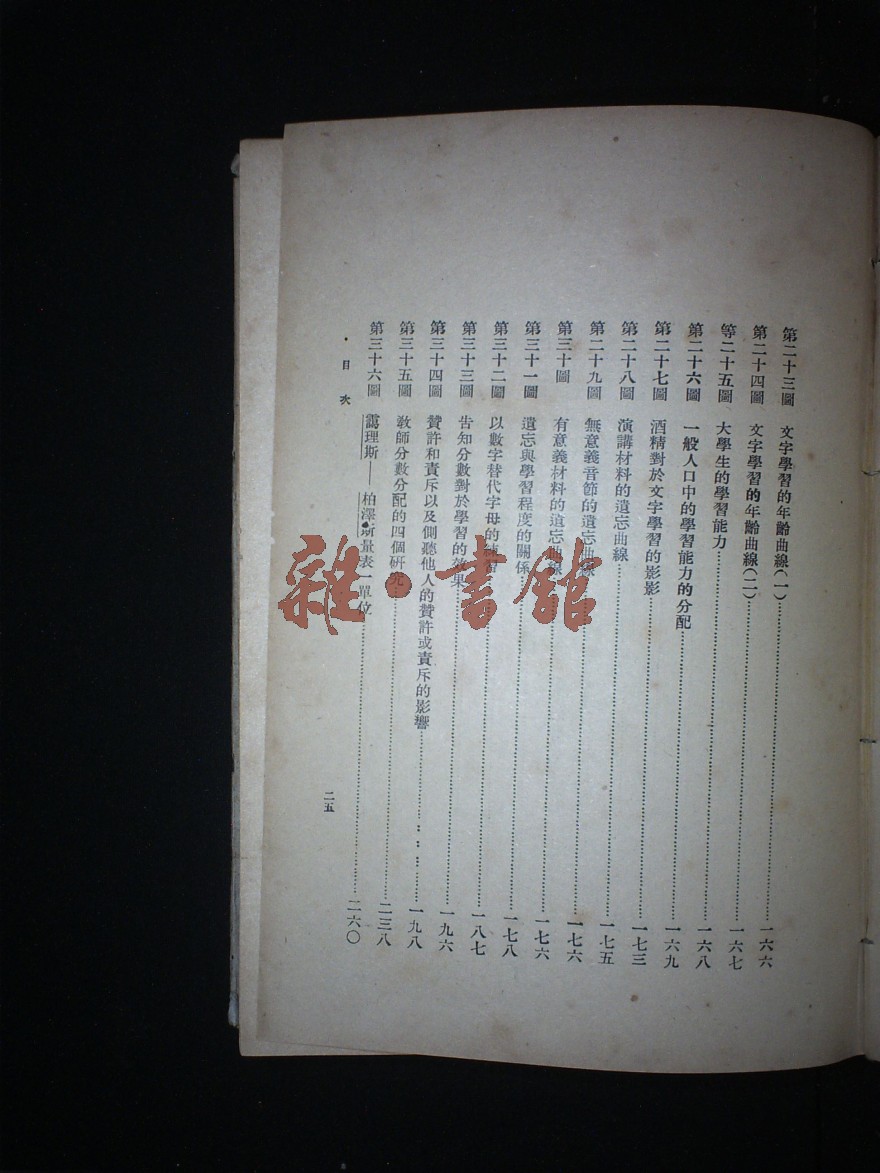 第二十三圖　文字學習的年齡曲線(一)……一六六
第二十四圖　文字學習的年齡曲線(二)……一六七
等二十五圖　大學生的學習能力……一六八
第二十六圖　一般人口中的學習能力的分配……一六九
第二十七圖　酒精對於文字學習的影影……一七三
第二十八圖　演講材料的遺忘曲線……一七五
第二十九圖　無意義音節的遺忘曲線……一七六
第三十圖　有意義材料的遺忘曲線……一七六
第三十一圖　遺忘與學習程度的關係……一七八
第三十二圖　以數字替代字母的練習……一八七
第三十三圖　告知分數對於學習的效果……一九六
第三十四圖　贊許和責斥以及側聽他人的贊許或責斥的影響……一九八
第三十五圖　教師分數分配的四個研究……二三八
第三十六圖　靄理斯——柏澤斯量表一單位……二六〇
目次
二五
雜·書館